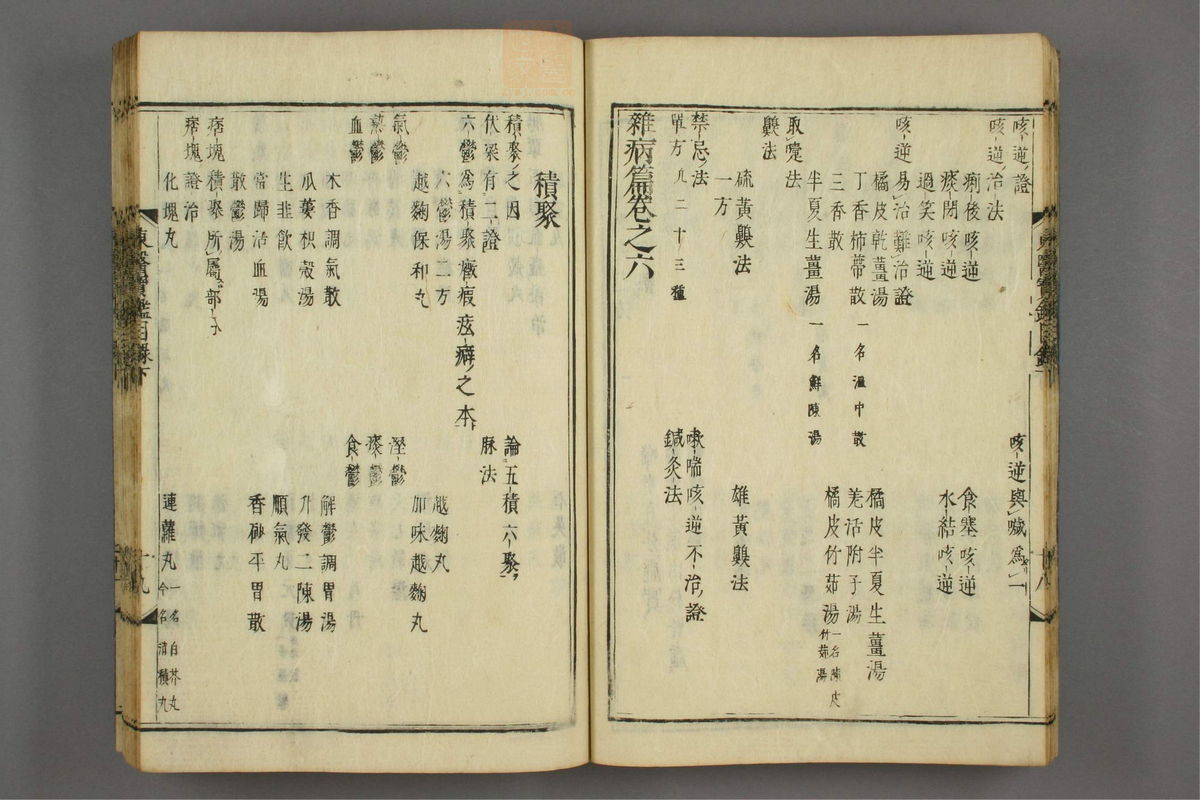 咳逆證
咳逆與噦爲一
咳逆治法
痢後咳逆
食塞咳逆
痰閉咳逆
水結咳逆
過笑咳逆
咳逆易治難治證
橘皮乾薑湯
橘皮半夏生薑湯
丁香柿蔕散 一名溫中散
羌活附子湯
三香散
橘皮竹茹湯 一名陳皮竹茹湯
半夏生薑湯 一名鮮陳湯
取嚔法
齅法
硫黃齅法
雄黃齅法
一方
禁忌法
嗽喘咳逆不治證
單方凡二十三種
鍼灸法
雜病篇卷之六
積聚
積聚之因
論五積六聚
伏梁有二證
脉法
六鬱爲積聚癥瘕痃癖之本
六鬱湯二方
越麴丸
越麴保和丸
加味越麴丸
氣鬱
濕鬱
熱鬱
痰鬱
血鬱
食鬱
木香調氣散
解鬱調胃湯
瓜蔞枳殼湯
升發二陳湯
生韭飮
順氣丸
當歸活血湯
香砂平胃散
散鬱湯
痞塊積聚所屬部分
痞塊證治
化塊丸
連蘿丸 一名白芥丸 今名消積丸
東醫寶鑑目錄下
十八
東醫寶鑑目錄下
十九